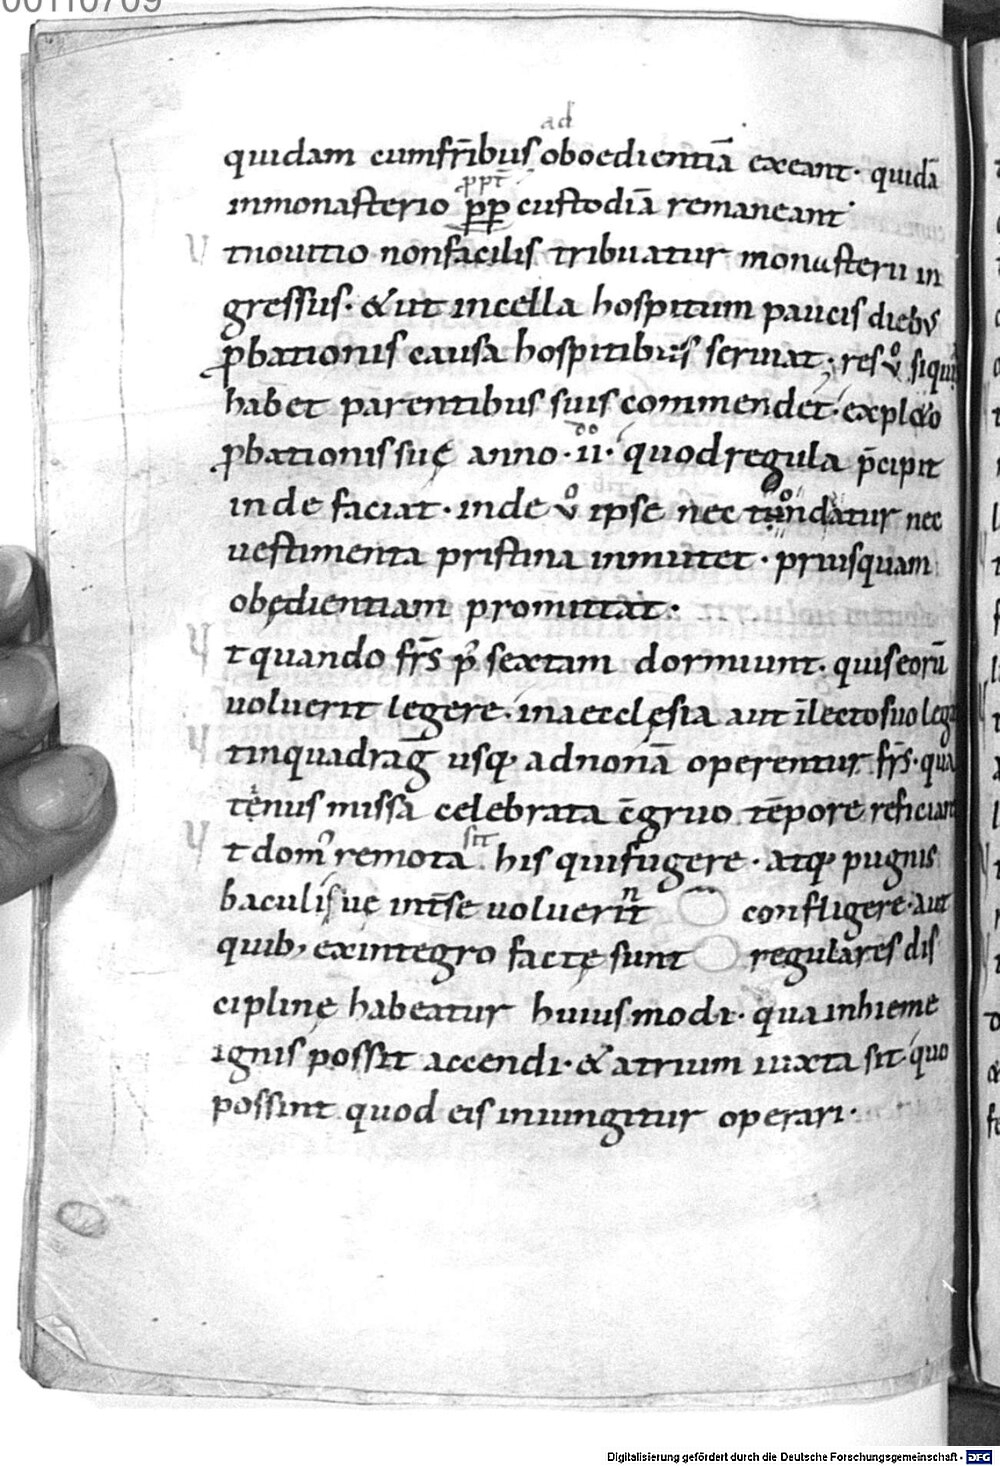 00110709
quidam cumfr̄ibus ad oboedientiā exeant· quidā
inmonasterio ꝓpt̄ ꝓꝑ custodiā remaneant·
V tnouitio nonfacilis tribuatur monasterii in
gressus· &ut incella hospitum paucis diebꝰ
ꝓbationis causa hospitibus seruiat; res ūo siqui
habet parentibus suis commendet· expleto
ꝓbationis suę anno ·ii· quod regula p̄cipit
inde faciat· inde ūo ipse nec tundatur nec
uestimenta pristina inmutet· priusquam
obędientiam promittat·
V tquando fr̄s p̄ sextam dormiunt· quiseorū
uoluerit legere· inaecclęsia aut īlectosuo leg
V tinquadraḡ usq· adnonā operentur fr̄s· qua
tenus missa celebrata c̄gruo tēpore reficiant
V t domꝰ remota sit his quifugere· atq· pugnis
baculis uę int̄se uoluerint confligere· aut
quib; exintegro factę sunt regulares dis
ciplinę habeatur huiusmodi· qua inhieme
ignis possit accendi· & atrium iuxta sit quo
possint quod eis iniungitur operari·
Digitalisierung gefördert durch die Deutsche Forschungsgemeinschaft - DFG